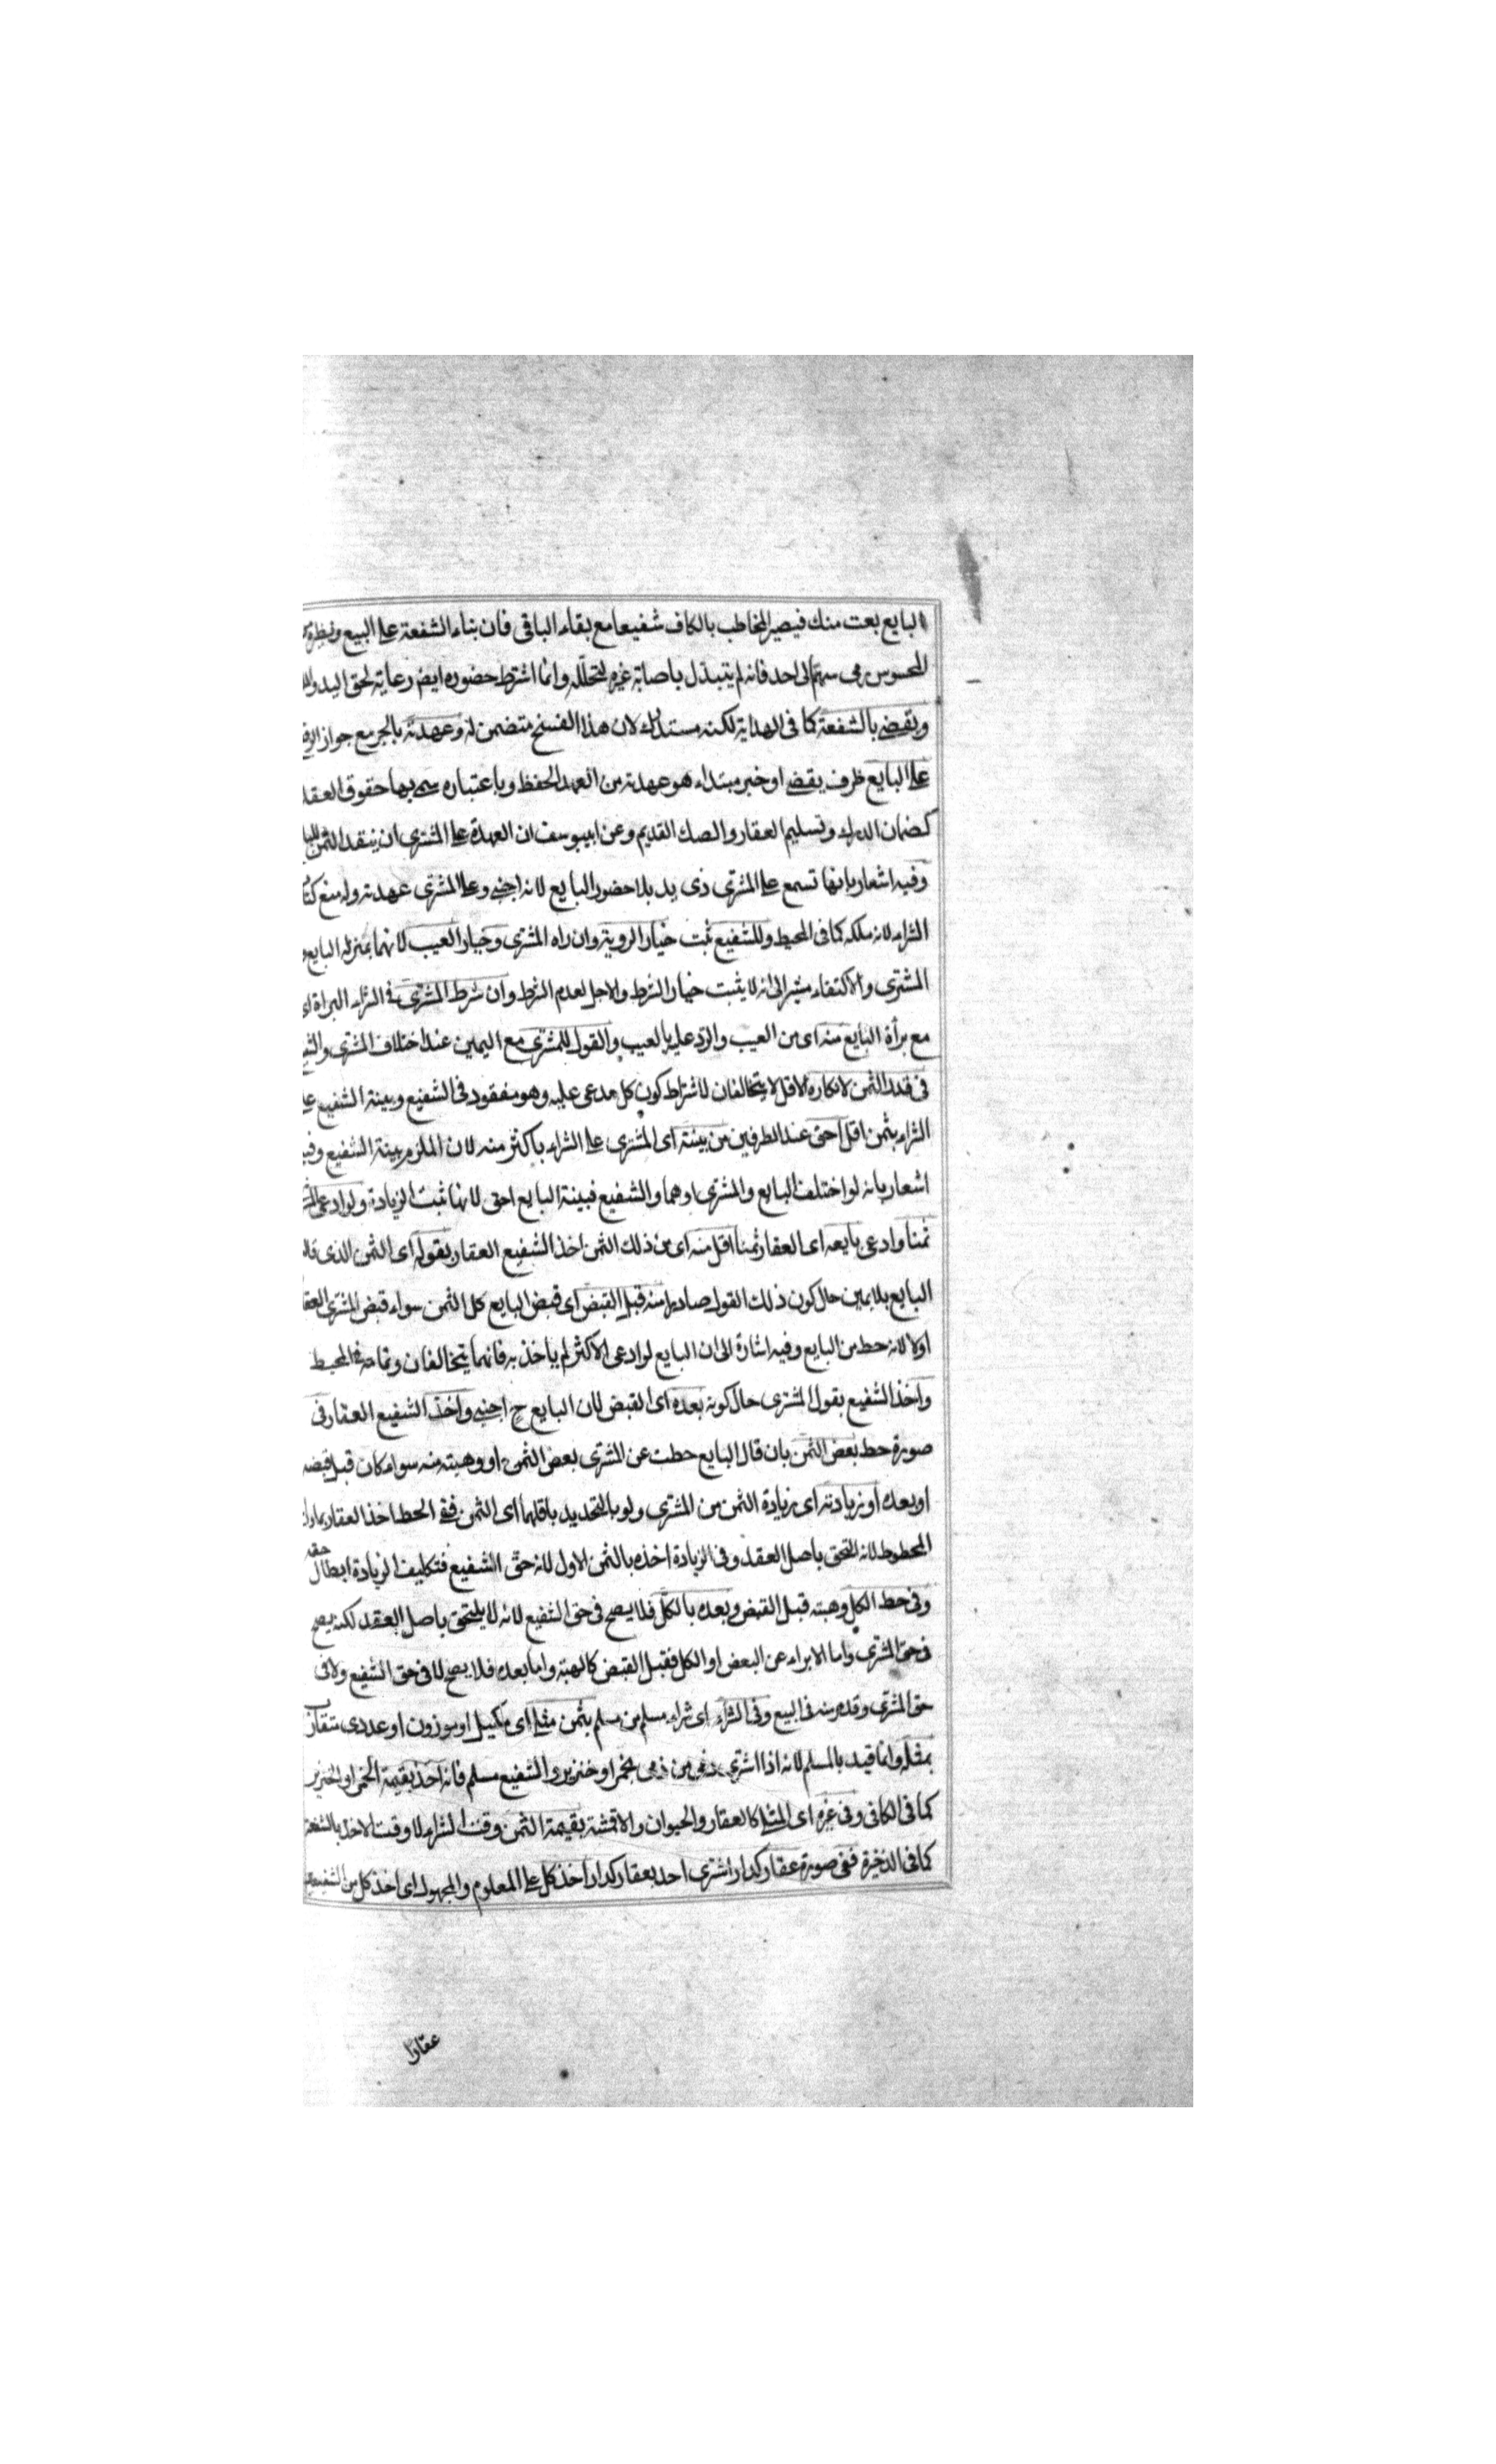 البايع بعت منك فيصير المخاطب بالكاف شفيعا مع بقاء الباقى فان بناء الشفعة على البيع ونظيره
المحسوس رمى سهم الى احد فانه لم يتبدل باصابة غيره لتخلله وانما اشترط حضوره ايض رعاية لحق اليد
ويقضى بالشفعة كما فى الهداية لكنه مستدرك لان هذا الفسخ متضمن له وعهدته بالجر مع جواز الرفع
على البايع ظرف يقضى او خبر مبتداء هو عهدته من العهد الحفظ وباعتباره سمى بها حقوق العقد
كضمان الدرك وتسليم العقار والصك القديم وعن ابيوسف ان العهدة على المشترى ان ينقد الثمن
وفيه اشعار بانها تسمع على المشترى ذى يد بلا حضور البايع لانه اجنبى وعلى المشترى عهدته وله منع
الشراء لانه ملكه كما فى المحيط وللشفيع ثبت خيار الروية وان راه المشترى وخيار العيب لانهما بمنزلة البايع
المشترى والاكتفاء مشير الى انه لا يثبت خيار الشرط والاجل لعدم الشرط وان شرط المشترى فى الشراء البراة اى
مع برأة البايع منه اى من العيب والرد عليه بالعيب والقول للمشترى مع اليمين عند اختلاف المشترى
فى قدر الثمن لانكاره الاقل لا يتخالفان لاشتراط كون كل مدعى عليه وهو مفقود فى الشفيع وبينة الشفيع على
الشراء بثمن اقل احق عند الطرفين من بينته اى المشترى على الشراء باكثر منه لان الملزم بينة الشفيع
اشعار بانه لو اختلف البايع والمشترى او هما والشفيع فبينة البايع احق لانها ثبت الزيادة ولو ادعى
ثمنا وادعى بايعه اى العقار ثمنا اقل منه اى من ذلك الثمن اخذ الشفيع العقار بقوله اى الثمن الذى قال
البايع بلا يمين حال كون ذلك القول صادرا منه قبل القبض اى قبض البايع كل الثمن سواء قبض المشترى العقار
اولا لانه حط من البايع وفيه اشارة الى ان البايع لو ادعى الاكثر لم ياخذ به فانهما يتخالفان وتمامه فى المحيط
واخذ الشفيع بقول المشترى حال كونه بعده اى القبض لان البايع ح اجنبى واخذ الشفيع العقار فى
صورة حط بعض الثمن بان قال البايع حطت عن المشترى بعض الثمن او وهبته منه سواء كان قبل قبضه
او بعده او زيادته اى زيادة الثمن من المشترى ولو بالتجديد باقلهما اى الثمن ففى الحط اخذ العقار
المحطوط لانه التحق باصل العقد وفى الزيادة اخذه بالثمن الاول لانه حق الشفيع فتكليف الزيادة ابطال حقه
وفى حط الكل وهبته قبل القبض وبعده بالكل فلا يصح فى حق الشفيع لانه لا يلتحق باصل العقد لكنه يصح
فى حق المشترى واما الابراء عن البعض او الكل فقبل القبض كالهبة واما بعده فلا يصح لا فى حق الشفيع ولا فى
حق المشترى وقد مر منه فى البيع وفى الشراء اى شراء مسلم من مسلم بثمن مثلى اى مكيل او موزون او عددى متقارب
بمثله وانما قيد بالمسلم لانه اذا اشترى ذمى من ذمى بخمر او خنزير والشفيع مسلم فانه اخذ بقيمة الخمر او الخنزير
كما فى الكافى وفى غيره اى المثلى كالعقار والحيوان والاقمشة بقيمة الثمن وقت الشراء لا وقت الاخذ بالشفعة
كما فى الذخيرة ففى صورة عقار كدار اشترى احد بعقار كدار اخذ كل على المعلوم والمجهول اى اخذ كل من
عقارا